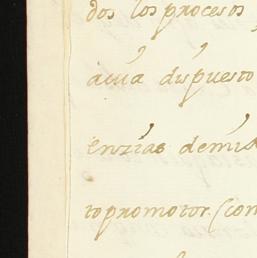 dos los procesos
auia dispuesto
enzias demis
to promotor. (con